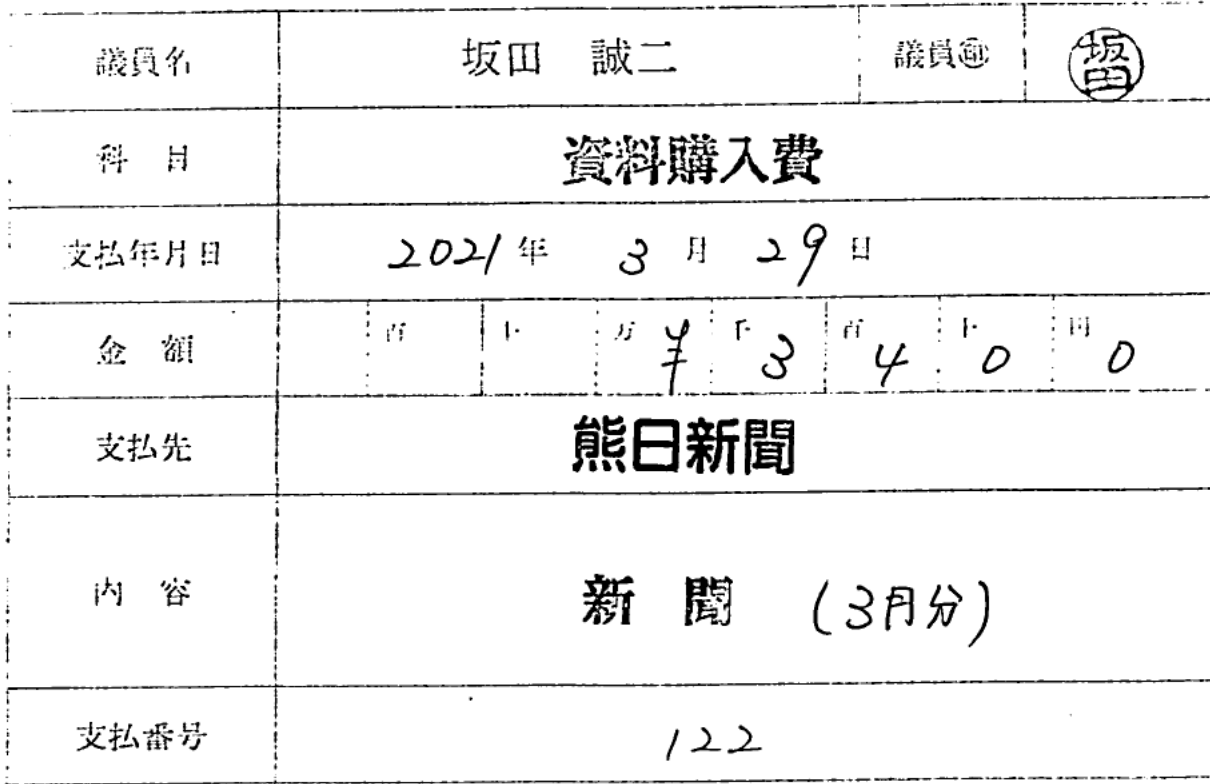 議員名 坂田 誠二 議員㊞ 坂田
科 目 資料購入費
支払年月日 2021年 3月 29日
金 額 百 十 万 ¥ 千 3 百 4 十 0 円 0
支払先 熊日新聞
内 容 新 聞 (3月分)
支払番号 122